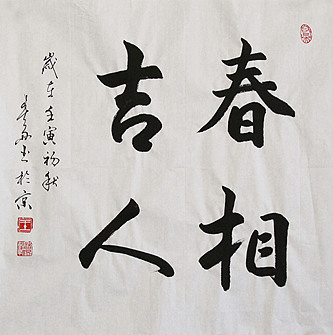 春相
吉人
歲在壬寅初秋
书於京